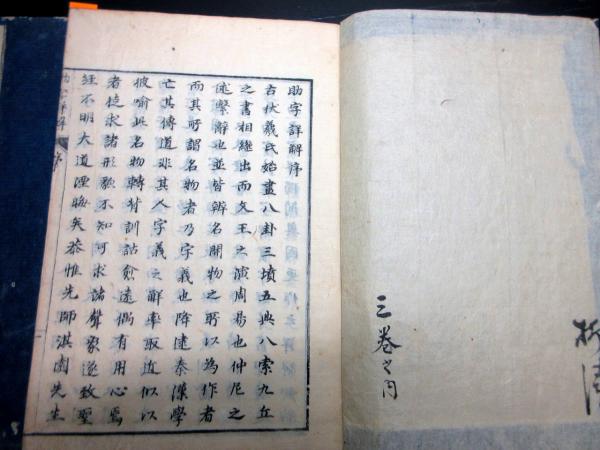 助字詳解序
古伏羲氏始畫八卦三墳五典八索九丘
之書相繼出而文王之演周易也仲尼之
繫辭也並皆辨名開物之所以為作者
而其所謂名物者乃字義也降逮秦漢學
亡其傳道非其人字義之解率取近似以
彼喻此名物轉背訓詁愈遠偶有用心焉
者徒求諸形不知何求諸聲象遂致聖
經不明大道湮晦矣恭惟先師淇園先生
三卷之內
助字詳解
序